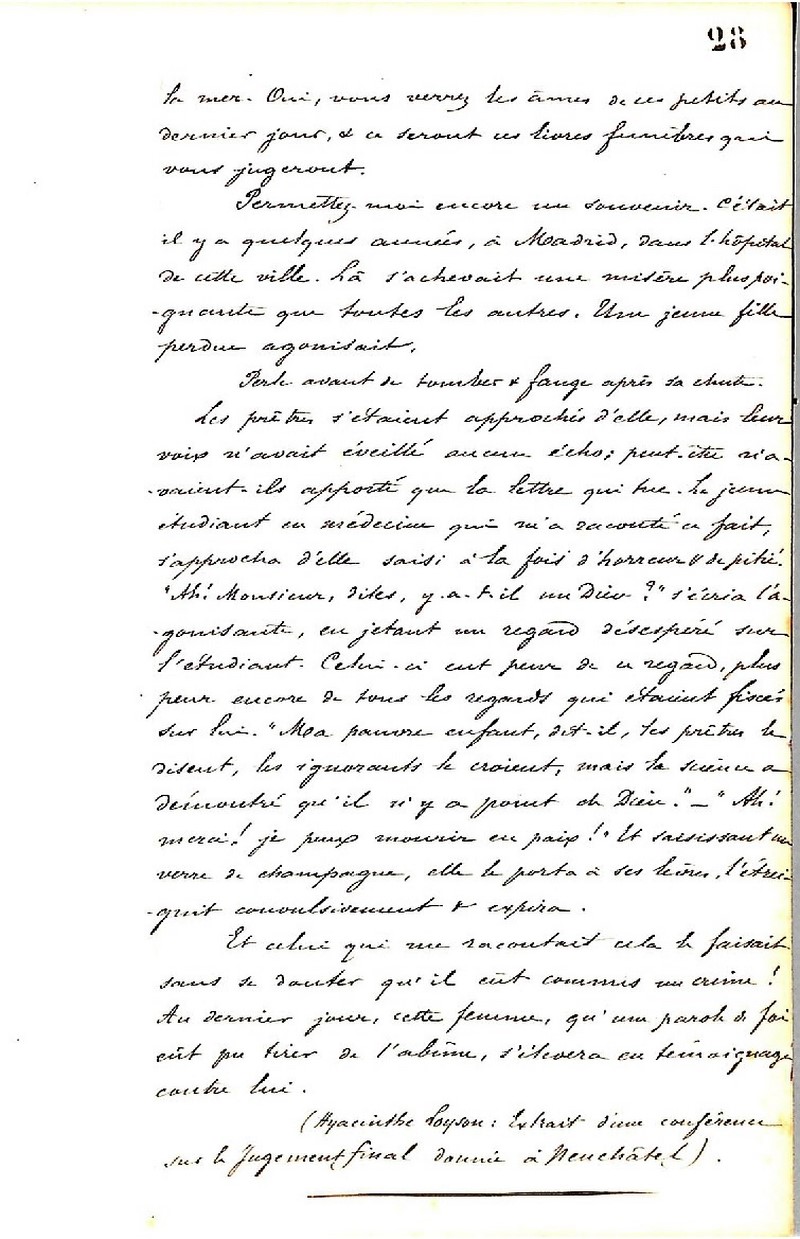 28
la mer. Oui, vous verrez les âmes de ces petits au
dernier jour, & ce seront ces livres funèbres qui
vous jugeront.
Permettez-moi encore un souvenir. C'était
il y a quelques années, à Madrid, dans l'hôpital
de cette ville. Là s'achevait une misère plus poi-
-gnante que toutes les autres. Une jeune fille
perdue agonisait.
Perle avant de tomber & fange après sa chute.
Les prêtres s'étaient approchés d'elle, mais leur
voix n'avait éveillé aucun écho; peut-être n'a-
-vaient-ils apporté que la lettre qui tue. Le jeune
étudiant en médecine qui m'a raconté ce fait,
s'approcha d'elle saisi à la fois d'horreur & de pitié.
"Ah! Monsieur, dites, y-a-t-il un Dieu?" s'écria l'a-
-gonisante, en jetant un regard désespéré sur
l'étudiant. Celui-ci eut peur de ce regard, plus
peur encore de tous les regards qui étaient fixés
sur lui. "Ma pauvre enfant, dit-il, les prêtres le
disent, les ignorants le croient, mais la science a
démontré qu'il n'y a point de Dieu." — "Ah!
merci! je peux mourir en paix!" Et saisissant un
verre de champagne, elle le porta à ses lèvres, l'étrei-
-gnit convulsivement & expira.
Et celui qui me racontait cela le faisait
sans se douter qu'il eût commis un crime!
Au dernier jour, cette femme, qu'une parole de foi
eût pu tirer de l'abîme, s'élèvera en témoignage
contre lui.
(Hyacinthe Loyson: Extrait d'une conférence
sur le Jugement final donnée à Neuchâtel).